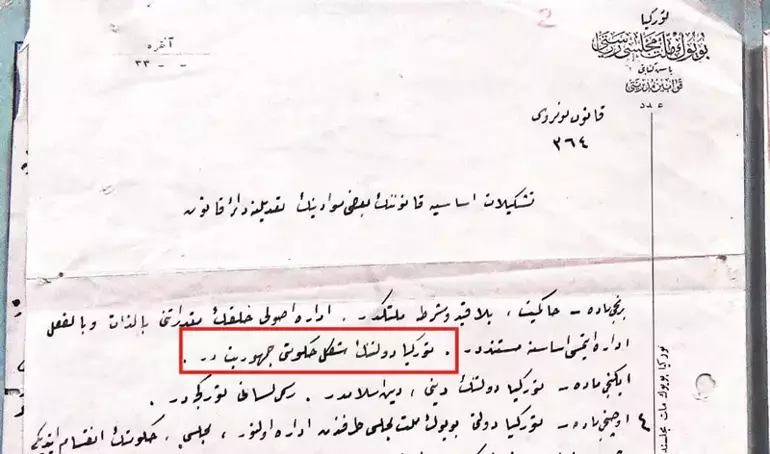 2
توركيا
بويوك ملت مجلسى رياستى
باش كتابتى
قوانين مديريتى
عدد
آنقره
٣٣ - -
قانون نومروسى
٣٦٤
تشكيلات اساسيه قانوننك بعضى موادينك تعديلنه دائر قانون
برنجى ماده - حاكميت ، بلاقيد وشرط ملتكدر . اداره اصولى خلقك مقدراتنى بالذات وبالفعل
اداره ايتمسى اساسنه مستنددر . توركيا دولتنك شكل حكومتى جمهوريت در .
ايكنجى ماده - توركيا دولتنك دينى ، دين اسلامدر . رسمى لسانى توركجه در .
اوچنجى ماده - توركيا دولتى بويوك ملت مجلسى طرفندن اداره اولنور ، مجلس ، حكومتك انقسام ايتديكى
٤
توركيا بويوك ملت مجلسنده